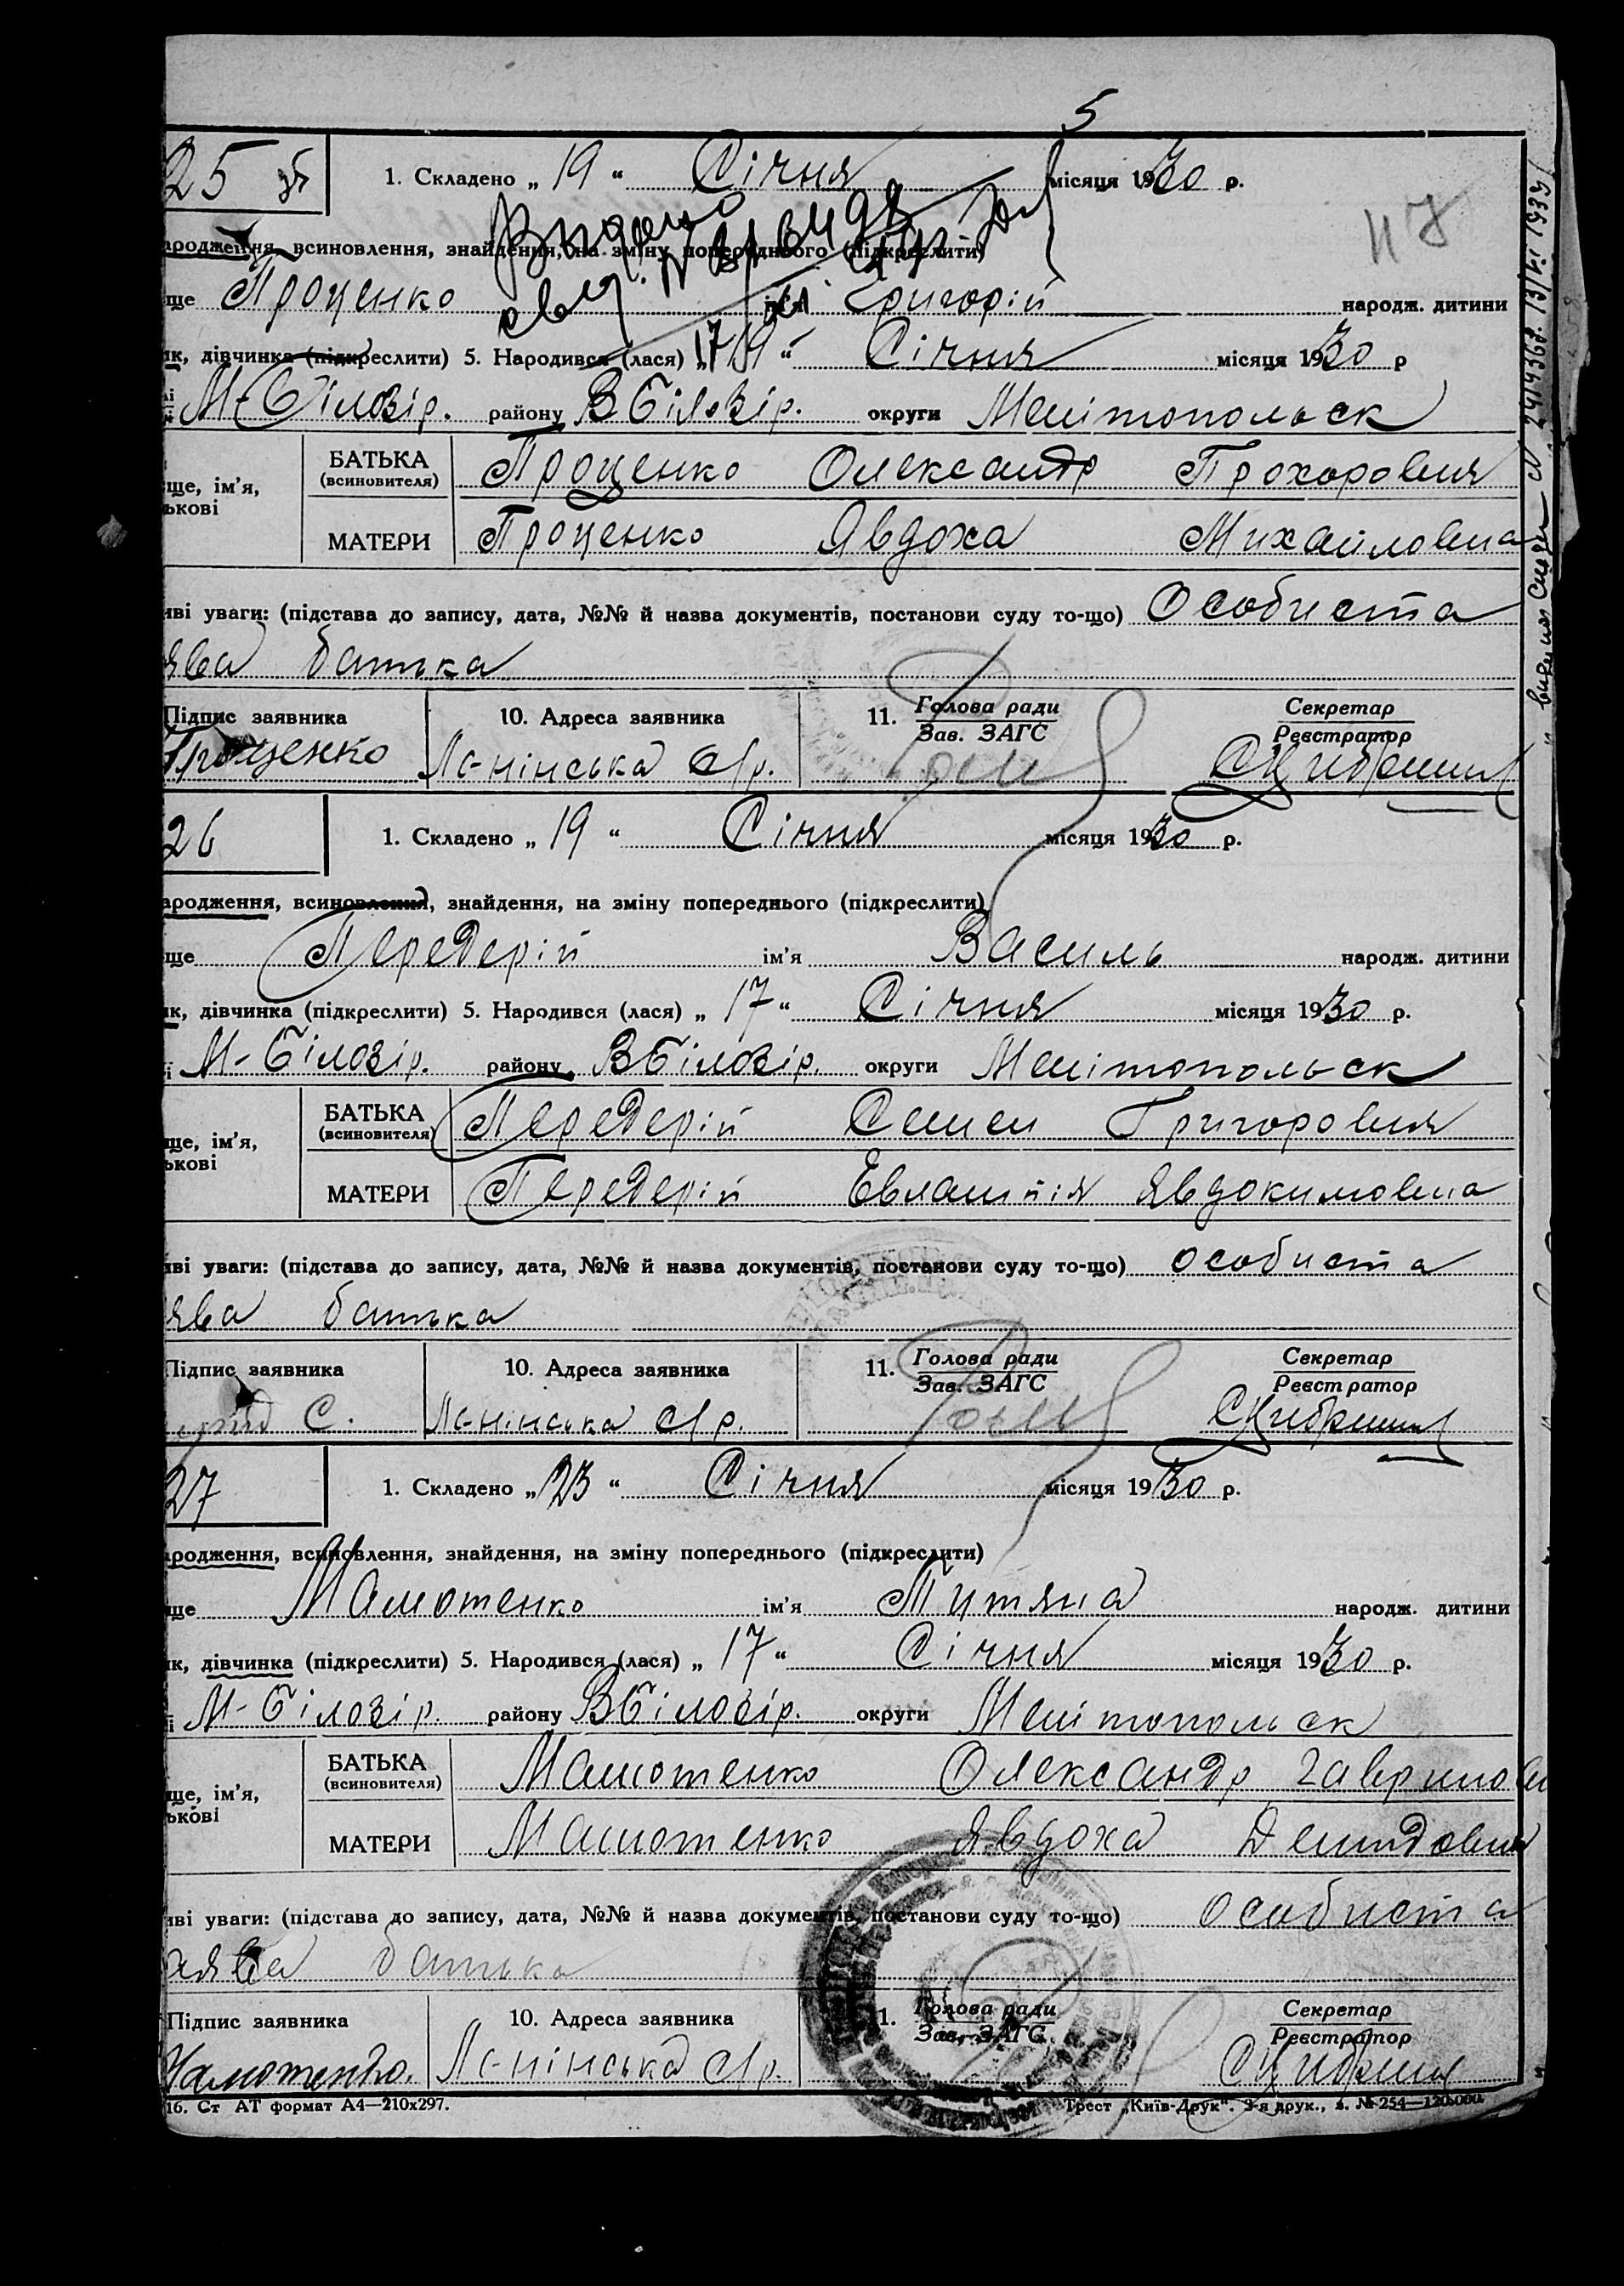 5
25
1. Складено „ 19 “ Січня місяця 1930 р.
ародження, всиновлення, знайдення, на зміну попереднього (підкреслити)
Видано
ще Проценко ім'я Григорій народж. дитини
як, дівчинка (підкреслити) 5. Народився (лася) „ 17 “ Січня місяця 1930 р
М-Білозір. району ВБілозір. округи Мелітопольск
ще, ім'я,
ькові
БАТЬКА
(всиновителя)
Проценко Олександр Прохорович
МАТЕРИ Проценко Явдоха Михайловна
иві уваги: (підстава до запису, дата, №№ й назва документів, постанови суду то-що) Особиста
ява батька
Підпис заявника 10. Адреса заявника 11. Голова ради Секретар
Зав. ЗАГС Реєстратор
Проценко Ленінська с/р.
26
1. Складено „ 19 “ Січня місяця 1930 р.
ародження, всиновлення, знайдення, на зміну попереднього (підкреслити)
ще Передерій ім'я Василь народж. дитини
як, дівчинка (підкреслити) 5. Народився (лася) „ 17 “ Січня місяця 1930 р.
і М-Білозір. району ВБілозір. округи Мелітопольск
ще, ім'я,
ькові
БАТЬКА
(всиновителя)
Передерій Семен Григорович
МАТЕРИ Передерій Евлампія Явдокимовна
иві уваги: (підстава до запису, дата, №№ й назва документів, постанови суду то-що) особиста
ява батька
Підпис заявника 10. Адреса заявника 11. Голова ради Секретар
Зав. ЗАГС Реєстратор
С. Ленінська с/р.
27
1. Складено „ 23 “ Січня місяця 1930 р.
ародження, всиновлення, знайдення, на зміну попереднього (підкреслити)
ще Мамотенко ім'я Титяна народж. дитини
як, дівчинка (підкреслити) 5. Народився (лася) „ 17 “ Січня місяця 1930 р.
і М-Білозір. району ВБілозір. округи Мелітопольск
ще, ім'я,
ькові
БАТЬКА
(всиновителя)
Мамотенко Олександр Гаврилов
МАТЕРИ Мамотенко Явдоха Демидовна
иві уваги: (підстава до запису, дата, №№ й назва документів, постанови суду то-що) особиста
аява батька
Підпис заявника 10. Адреса заявника 11. Голова ради Секретар
Зав. ЗАГС Реєстратор
Мамотенко. Ленінська с/р.
16. Ст АТ формат А4—210х297. Трест „Київ-Друк“. 3-я друк., з. № 254—120.000.